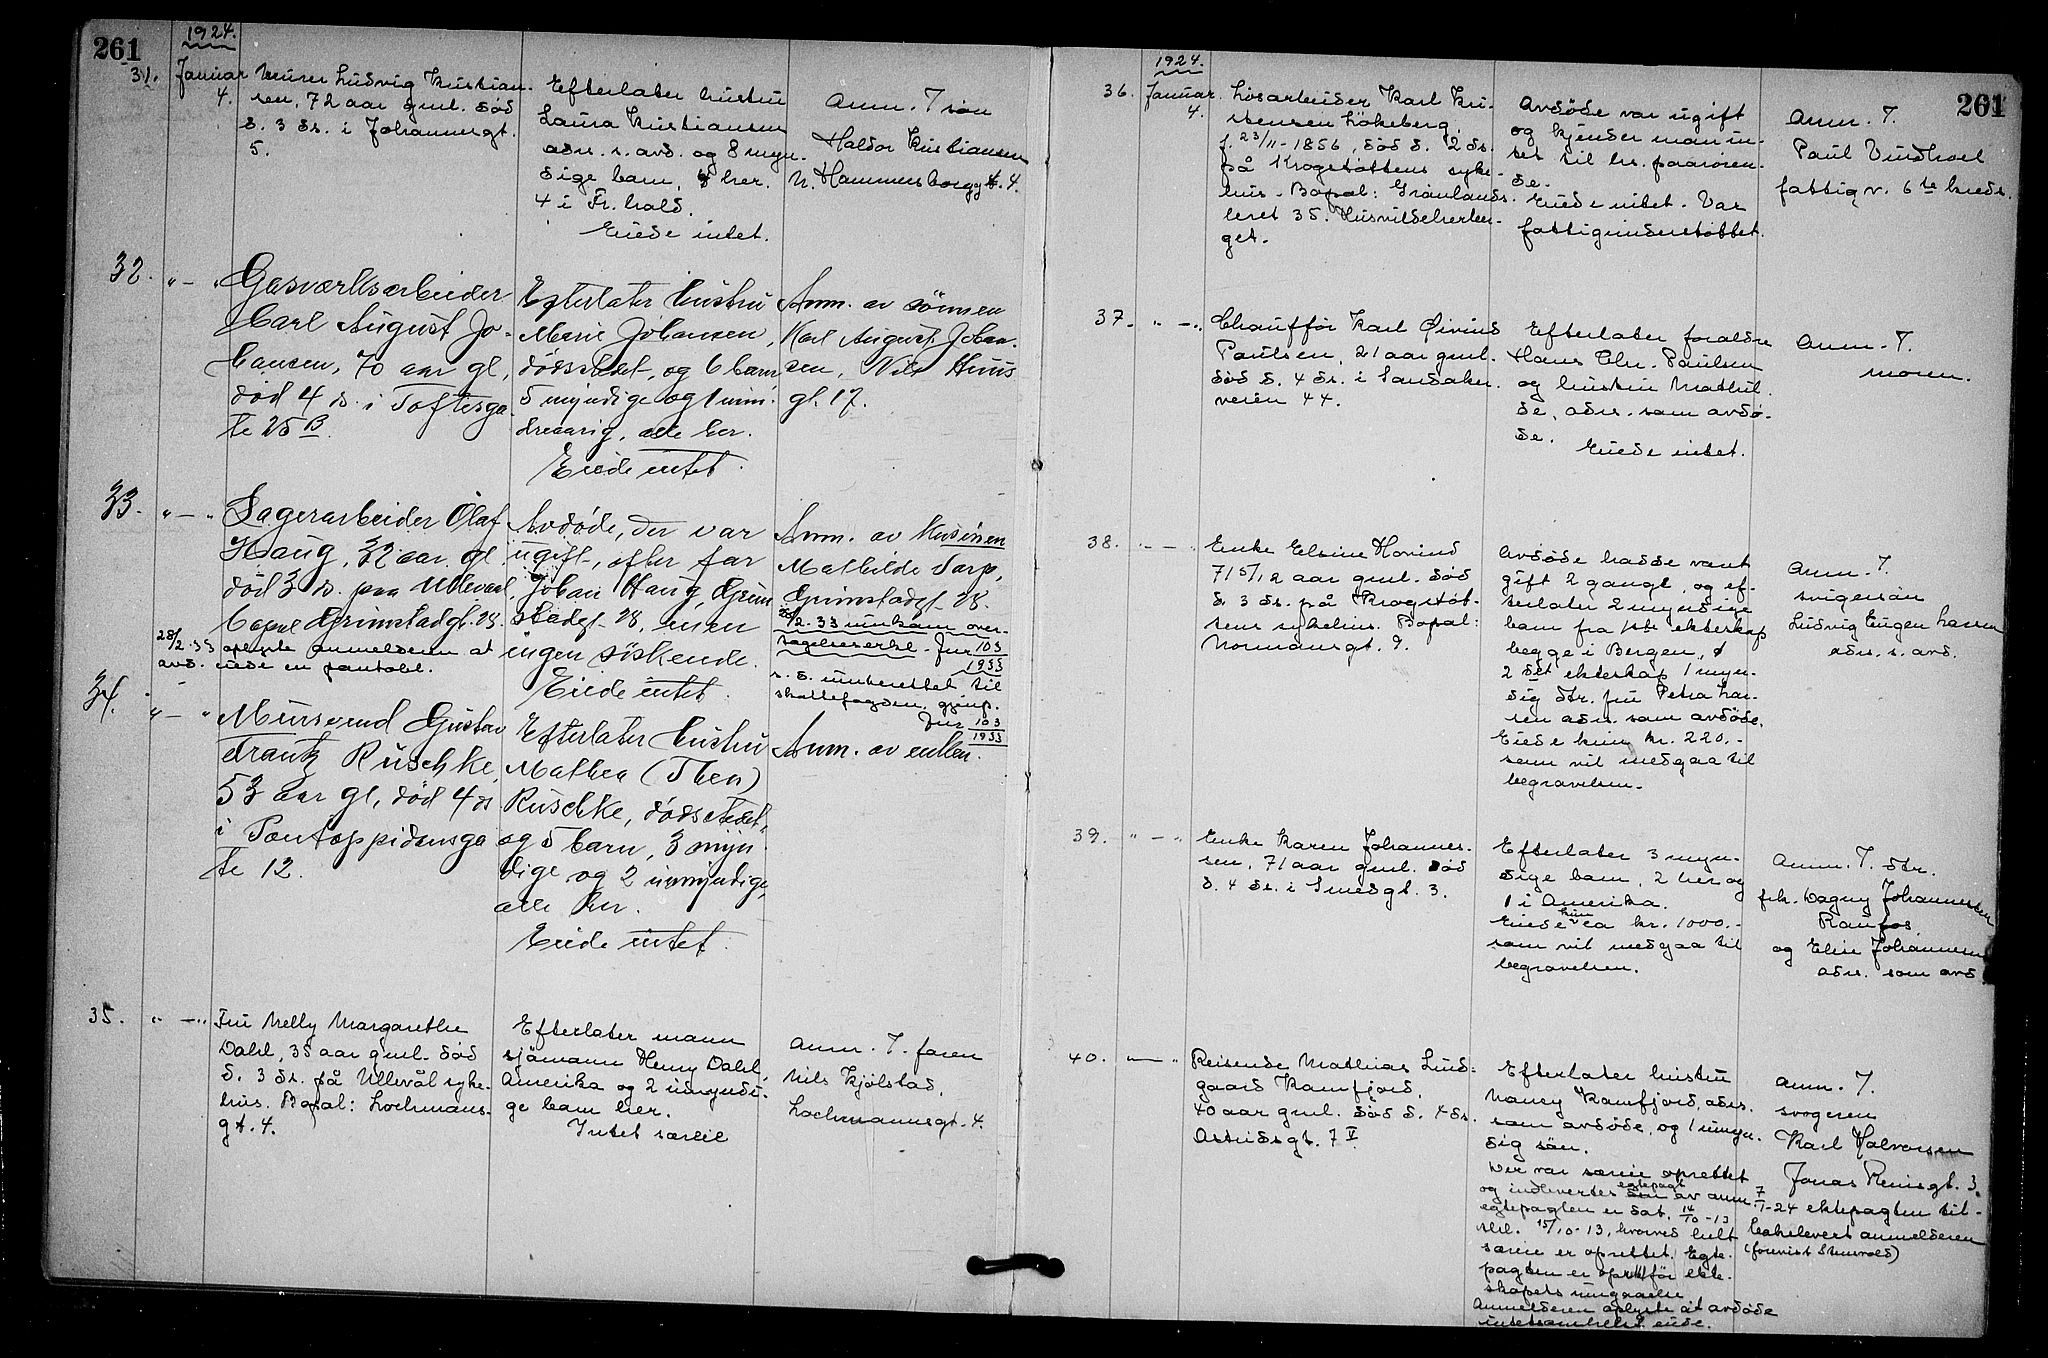 261
1924.
31.
Januar
4.
Murer Ludvig Kristian-
sen, 72 aar gml. död
d. 3 ds. i Johannesgt.
5.
Efterlater hustru
Laura Kristiansen
adrs. s. avd. og 8 myn-
dige barn, her.
4 i Fr.hald.
Eiede intet.
Anm. T. sön
Haldor Kristiansen
N. Hammersborggt. 4.
32.
" — "
Gasværksarbeider
Carl August Jo-
hansen, 70 aar gl,
död 4 ds. i Toftesga-
te 25 B.
Efterlater hustru
Marie Johansen,
dödsstedet, og 6 barn
5 myndige og 1 min-
dreaarig, alle her.
Eiede intet.
Anm. av sönnen
Karl August Johan-
sen, Nils Huus
gt. 17.
33.
" — "
Lagerarbeider Olaf
Haug, 32 aar gl.
död 3 ds. paa Ullevaal,
bopæl Grimstadgt. 28.
28/2.33 oplyste anmelderen at
avd. eiede en pantobl.
Avdöde, der var
ugift, efter far
Johan Haug, Grim
stadgt 28, men
ingen söskende.
Eiede intet.
Anm. av Kusinen
Mathilde Tarp,
Grimstadgt 28.
28/2. 33 innkom over-
tagelseserkl. Jnr 103/1933
s. d. innberettet til
skattefogden, gjenp.
Jnr 103/1933
34.
" — "
Murersvend Gustav
Frantz Ruschke,
53 aar gl, död 4 ds
i Pontoppidansga
te 12.
Efterlater hustru
Mathea (Thea)
Ruschke, dödsstedet,
og 5 barn, 3 myn-
dige og 2 umyndige,
alle her.
Eiede intet.
Anm. av enken.
35.
" — "
Fru Nelly Margarethe
Dahl, 35 aar gml. död
d. 3 ds. på Ullevål syke-
hus. Bopæl: Lochmans-
gt. 4.
Efterlater mann
sjömann Henry Dahl,
Amerika og 2 umyndi-
ge barn her.
Intet særeie
Anm. T. faren
Nils Kjölstad,
Lochmannsgt. 4.
261
1924.
36.
Januar.
4.
Lösarbeider Karl Kri-
stensen Lökeberg,
f. 23/11-1856, död d. 2 ds.
på Krogstöttens syke-
hus. Bopæl: Grönlands-
leret 35. Husvildeherber-
get.
Avdöde var ugift
og kjender man in-
tet til hs. paaroren-
de.
Eiede intet. Var
fattigunderstöttet.
Anm. T.
Paul Vindhoel
fattigv. 6te kreds.
37.
" — "
Chaufför Karl Eivind
Paulsen, 21 aar gml.
död d. 4 ds. i Sandaker-
veien 44.
Efterlater foraldre
Hans Chr. Paulsen
og hustru Mathil-
de, adrs. som avdö-
de.
Eiede intet.
Anm. T.
moren.
38.
" — "
Enke Elsine Hovind
71 5/12 aar gml. död
d. 3 ds. på Krogstöt-
tens sykehus. Bopæl:
Normansgt. 9.
Avdöde hadde vært
gift 2 gange, og ef-
terlater 2 myndige
barn fra 1ste ekteskap
begge i Bergen,
2 det ekteskap 1 myn-
dig dtr. fru Petra Lar-
sen adrs. som avdöde.
Eiede kun kr. 220.-
som vil medgaa til
begravelsen.
Anm. T.
svigersön
Ludvig Eugen Larsen
adrs. s. avd.
39.
" — "
Enke Karen Johannes-
sen, 71 aar gml. död
d. 4 ds. i Smedgt. 3.
Efterlater 3 myn-
dige barn, 2 her og
1 i Amerika.
Eiede kun ca kr. 1000.-
som vil medgaa til
begravelsen.
Anm. T. dtr.
frk. Dagny Johannessen
Raufos,
og Elise Johannessen
adrs. som avd
40.
" — "
Reisende Mathias Lund-
gaard Kamfjord,
40 aar gml. död d. 4 ds.
Astridsgt. 7 V
Efterlater hustru
Nancy Kamfjord, adrs.
som avdöde, og 1 umyn-
dig sön.
Der var særeie oprettet
og indlevertes egtepagt av anm.
egtepagten er dat. 14/10-13
thl. 15/10-13, hvorved helt
særeie er oprettet. Egte-
pagten er opret för ekte-
skapets inngaaelse
Anmelderen oplyste at avdöde
intetsomhelst eiede.
Anm. T.
svogeren
Karl Halvorsen
Jonas Reinsgt. 3.
7/1-24 ektepagten til-
bakelevert anmelderen